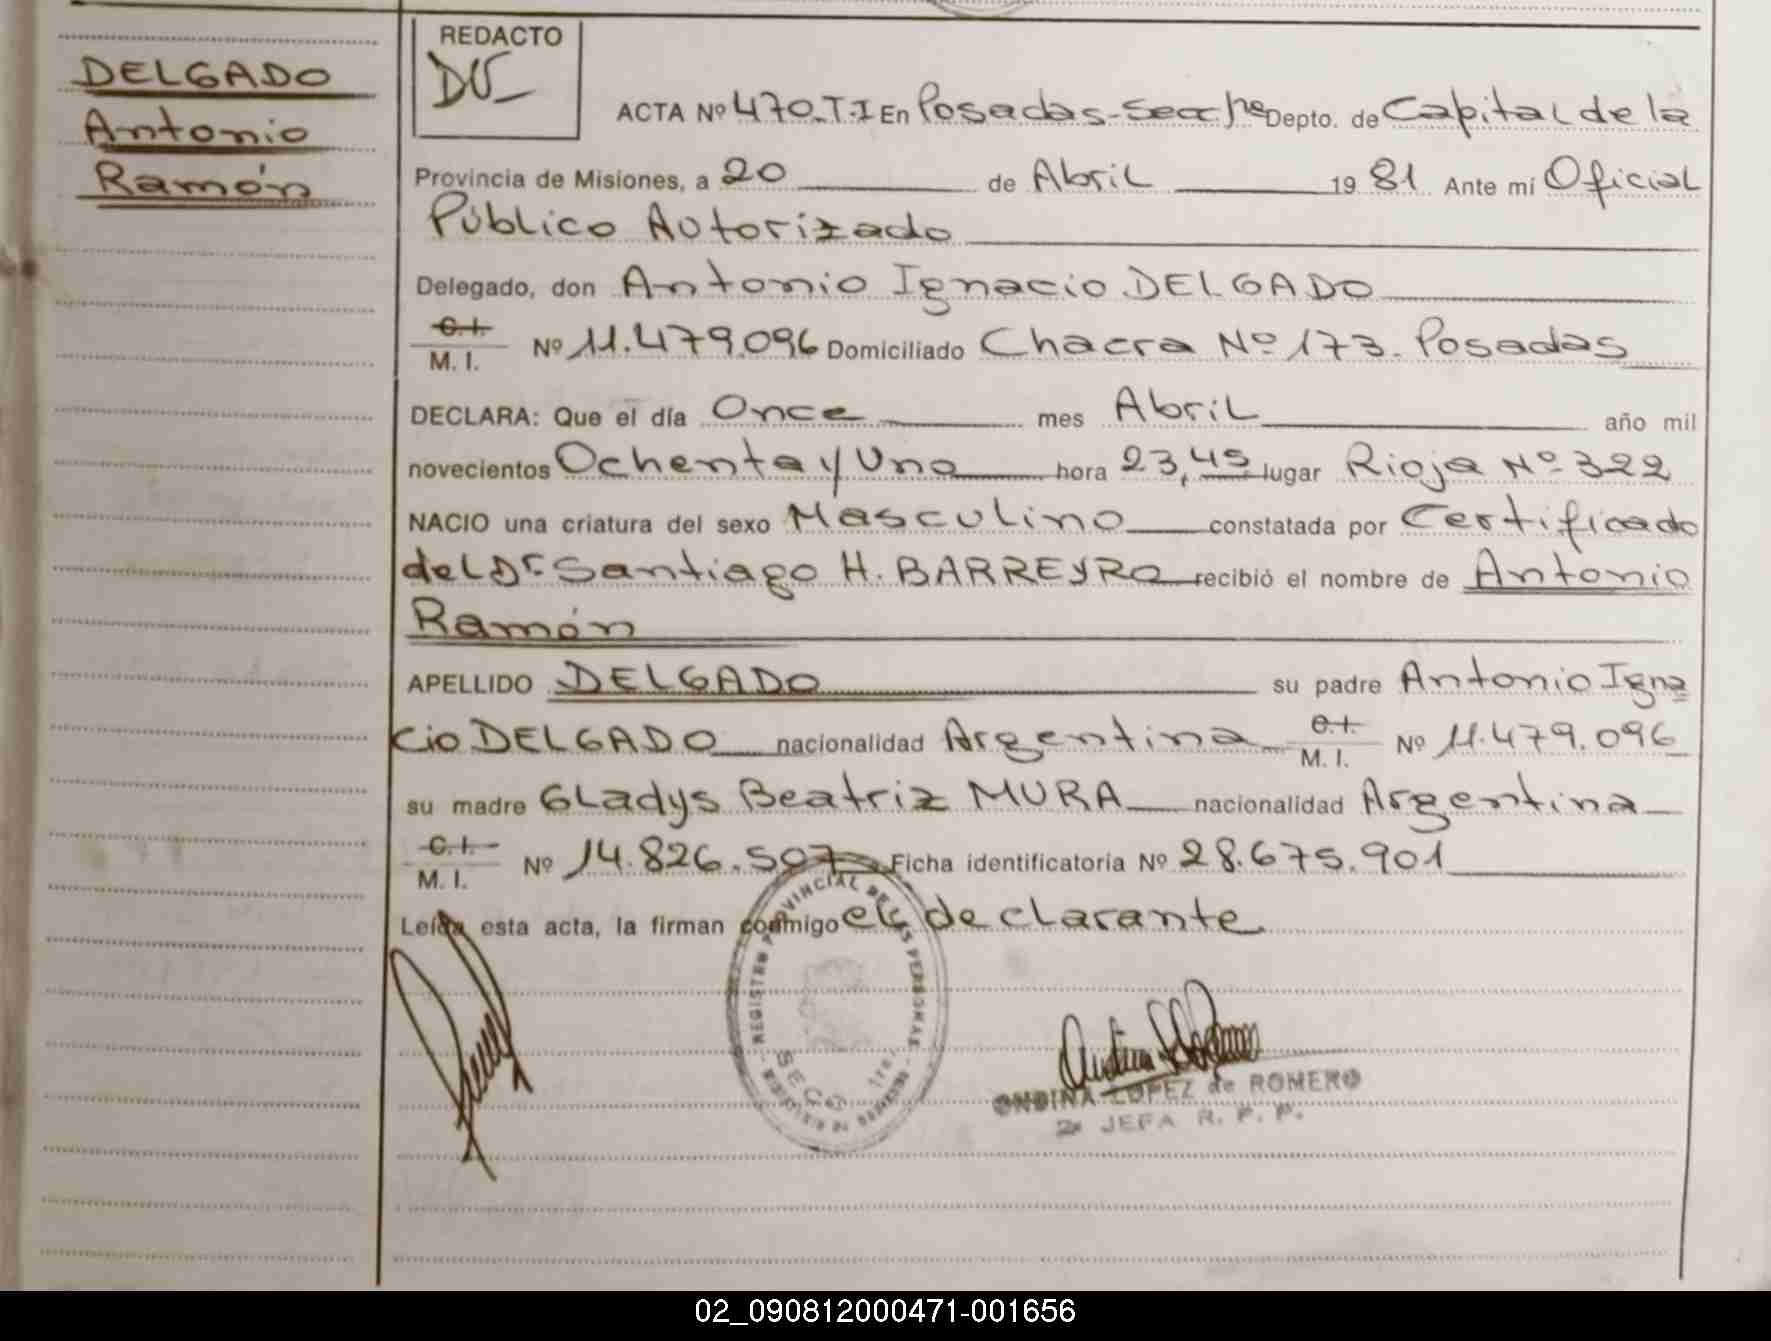 DELGADO
Antonio
Ramón
REDACTO
ACTA Nº 470.T.I En Posadas-Secc 1ra Depto. de Capital de la
Provincia de Misiones, a 20 de Abril 1981 Ante mí Oficial
Público Autorizado
Delegado, don Antonio Ignacio DELGADO
C.I.
M. I. Nº 11.479.096 Domiciliado Chacra Nº 173. Posadas
DECLARA: Que el día Once mes Abril año mil
novecientos Ochenta y Uno hora 23,45 lugar Rioja Nº 322
NACIO una criatura del sexo Masculino constatada por Certificado
del Dr Santiago H. BARREYRO recibió el nombre de Antonio
Ramón
APELLIDO DELGADO su padre Antonio Igna
cio DELGADO nacionalidad Argentina C.I. M. I. Nº 11.479.096
su madre Gladys Beatriz MURA nacionalidad Argentina
C.I.
M. I. Nº 14.826.507 Ficha identificatoria Nº 28.675.901
Leída esta acta, la firman conmigo el declarante
REGISTRO PROVINCIAL DE LAS PERSONAS
ONDINA LOPEZ de ROMERO
2a JEFA R. P. P.
02_090812000471-001656